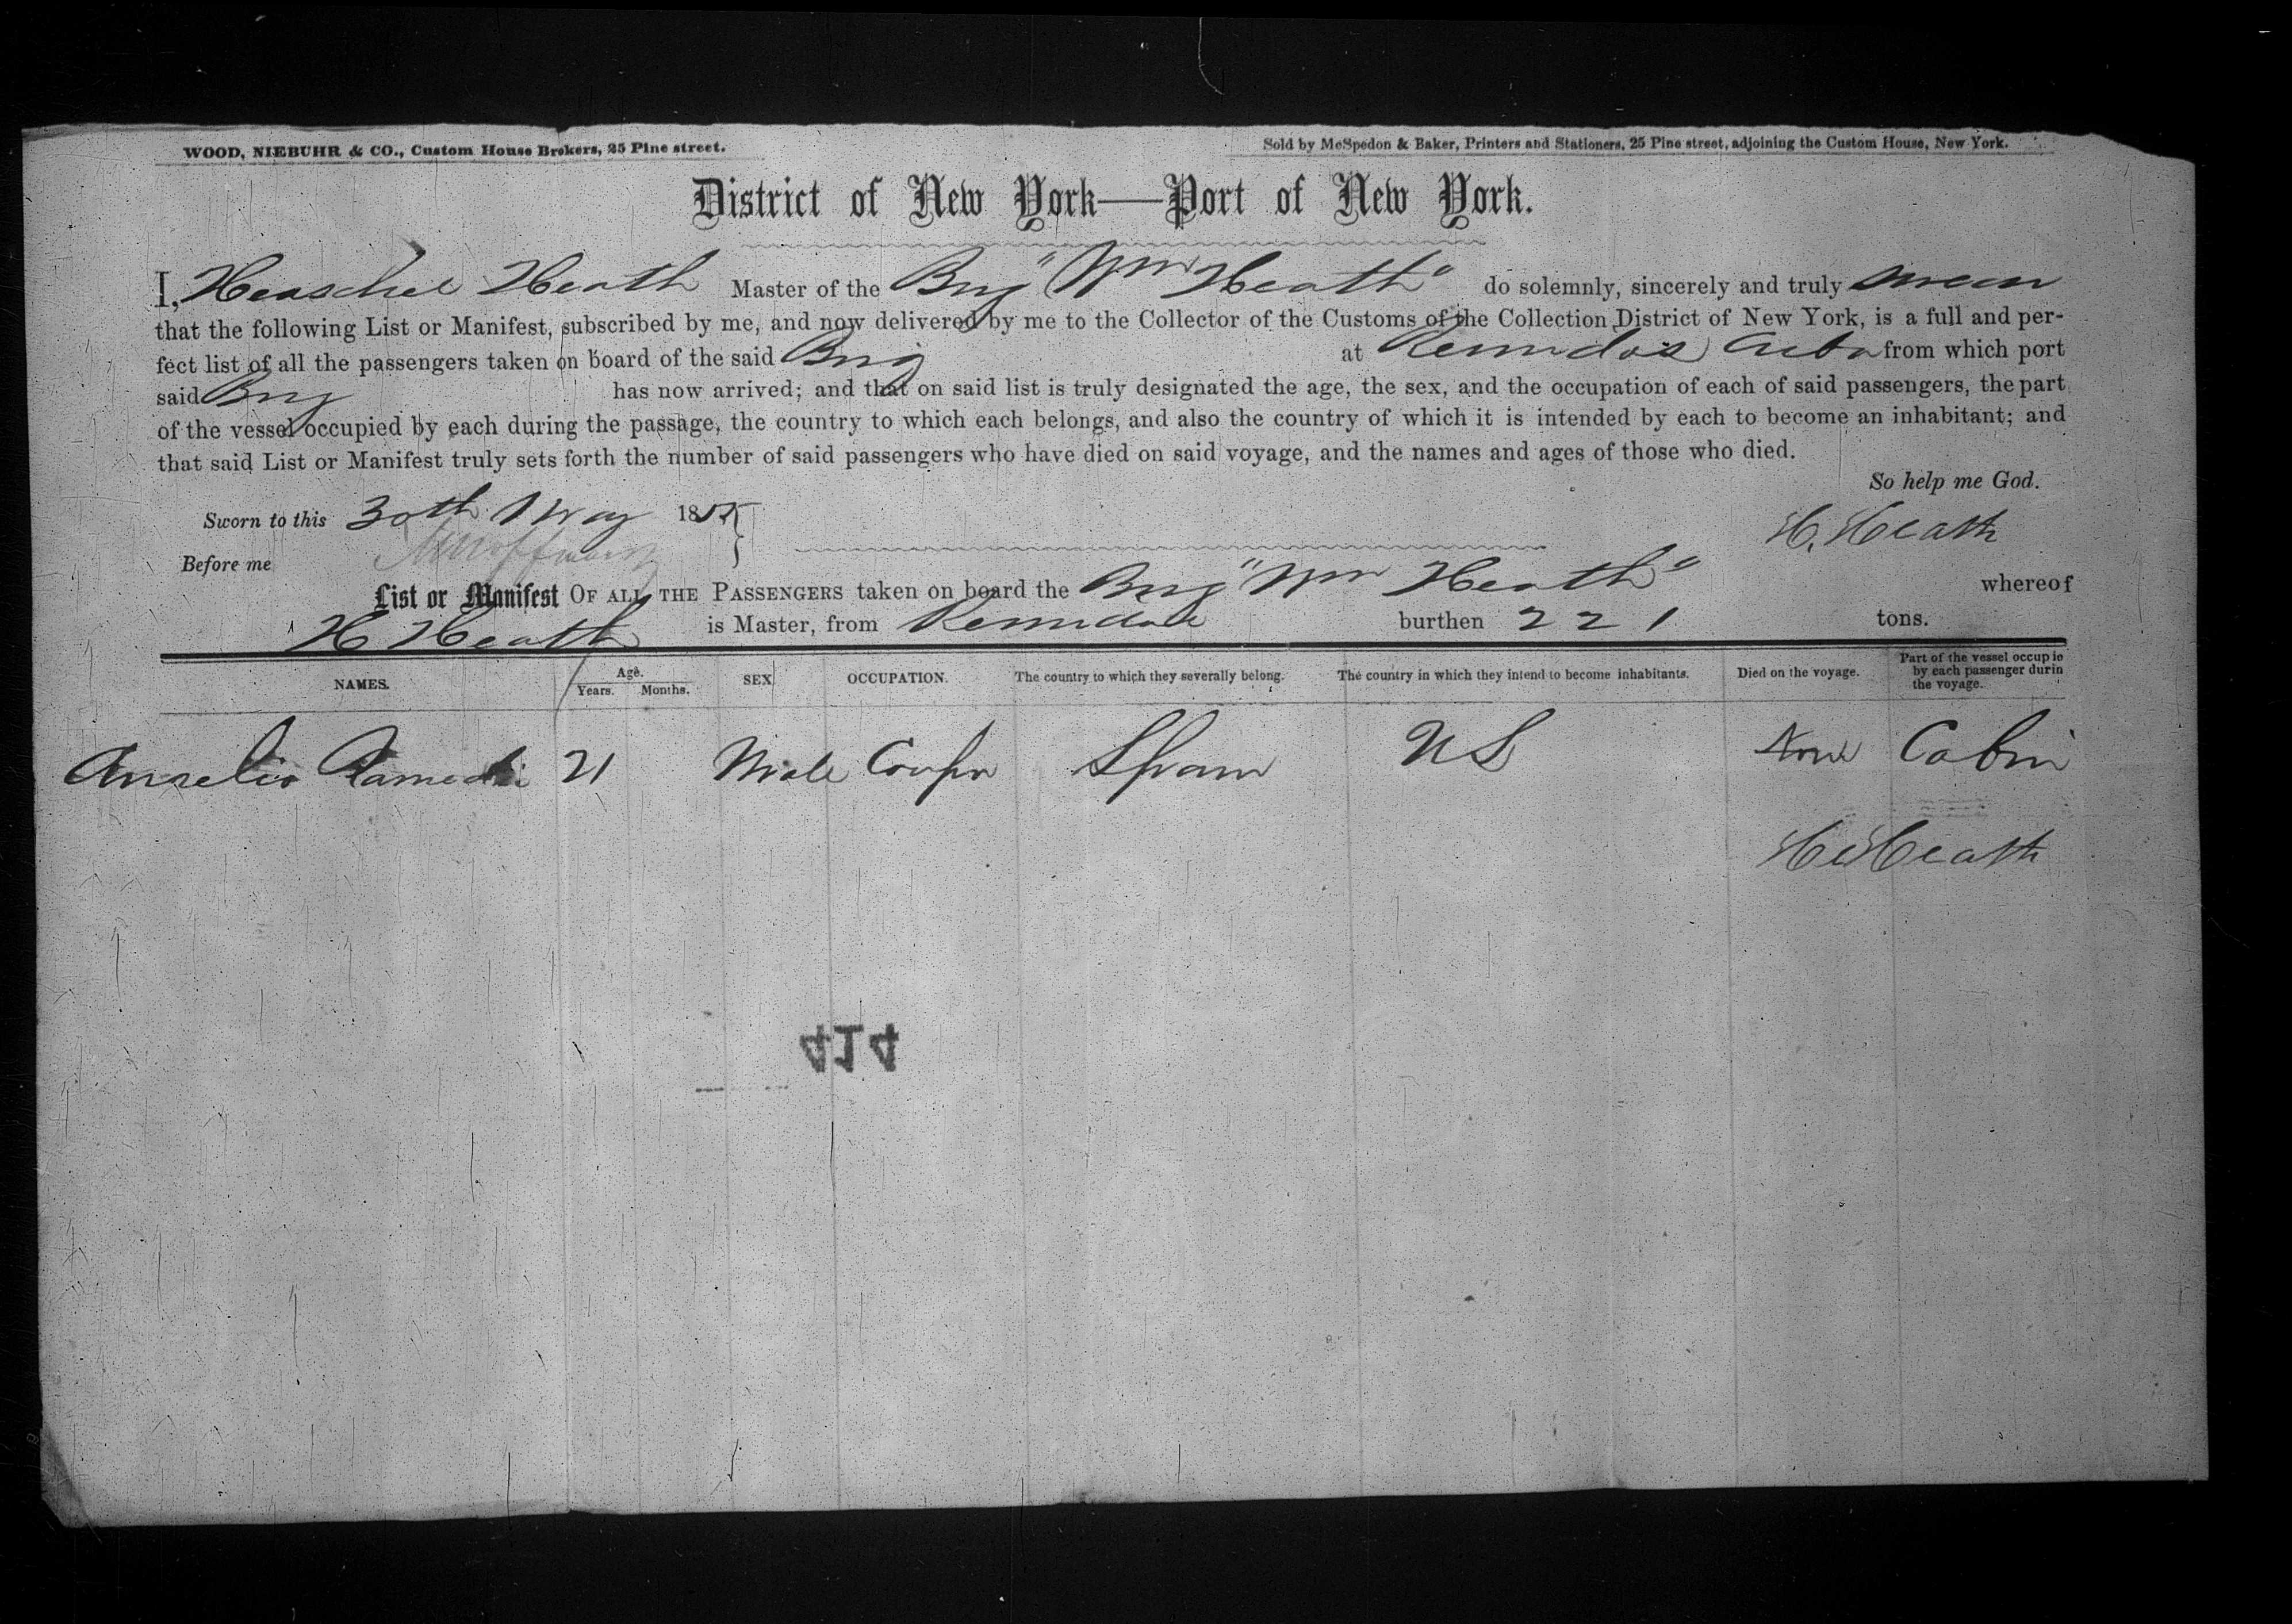 WOOD, NIEBUHR & CO., Custom House Brokers, 25 Pine street.
Sold by McSpedon & Baker, Printers and Stationers, 25 Pine street, adjoining the Custom House, New York.
District of New York—Port of New York.
I, Heaschel Heath Master of the Brig "Wm Heath" do solemnly, sincerely and truly swear
that the following List or Manifest, subscribed by me, and now delivered by me to the Collector of the Customs of the Collection District of New York, is a full and per-
fect list of all the passengers taken on board of the said Brig at Remedios Cuba from which port
said Brig has now arrived; and that on said list is truly designated the age, the sex, and the occupation of each of said passengers, the part
of the vessel occupied by each during the passage, the country to which each belongs, and also the country of which it is intended by each to become an inhabitant; and
that said List or Manifest truly sets forth the number of said passengers who have died on said voyage, and the names and ages of those who died.
So help me God.
Sworn to this 30th May 1855
H. Heath
Before me
List or Manifest OF ALL THE PASSENGERS taken on board the Brig "Wm Heath" whereof
H Heath is Master, from burthen 221 tons.
NAMES. Age. Years. Months. SEX OCCUPATION. The country to which they severally belong. The country in which they intend to become inhabitants. Died on the voyage. Part of the vessel occupie by each passenger durin the voyage.
Aurelio 21 Male Spain US None Cabin
H Heath
414